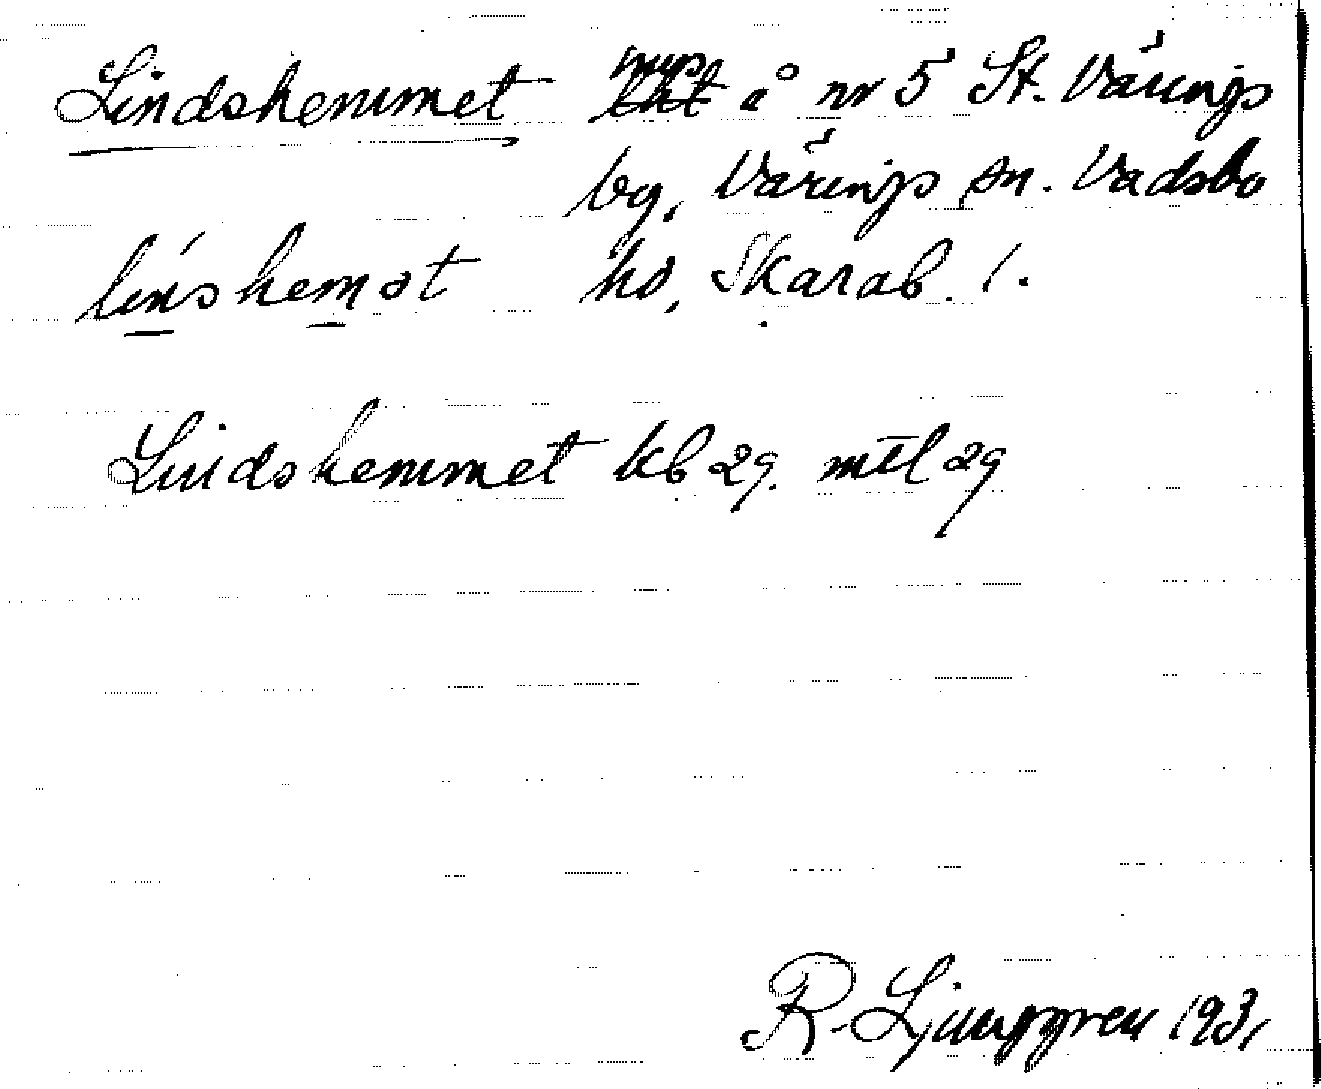 Lindshemmet å nr 5 St. Värings
by, Värings sn. Vadsbo
hd, Skarab. l.
Lindshemmet kb 29. mtl 29
R. Ljunggren 1931